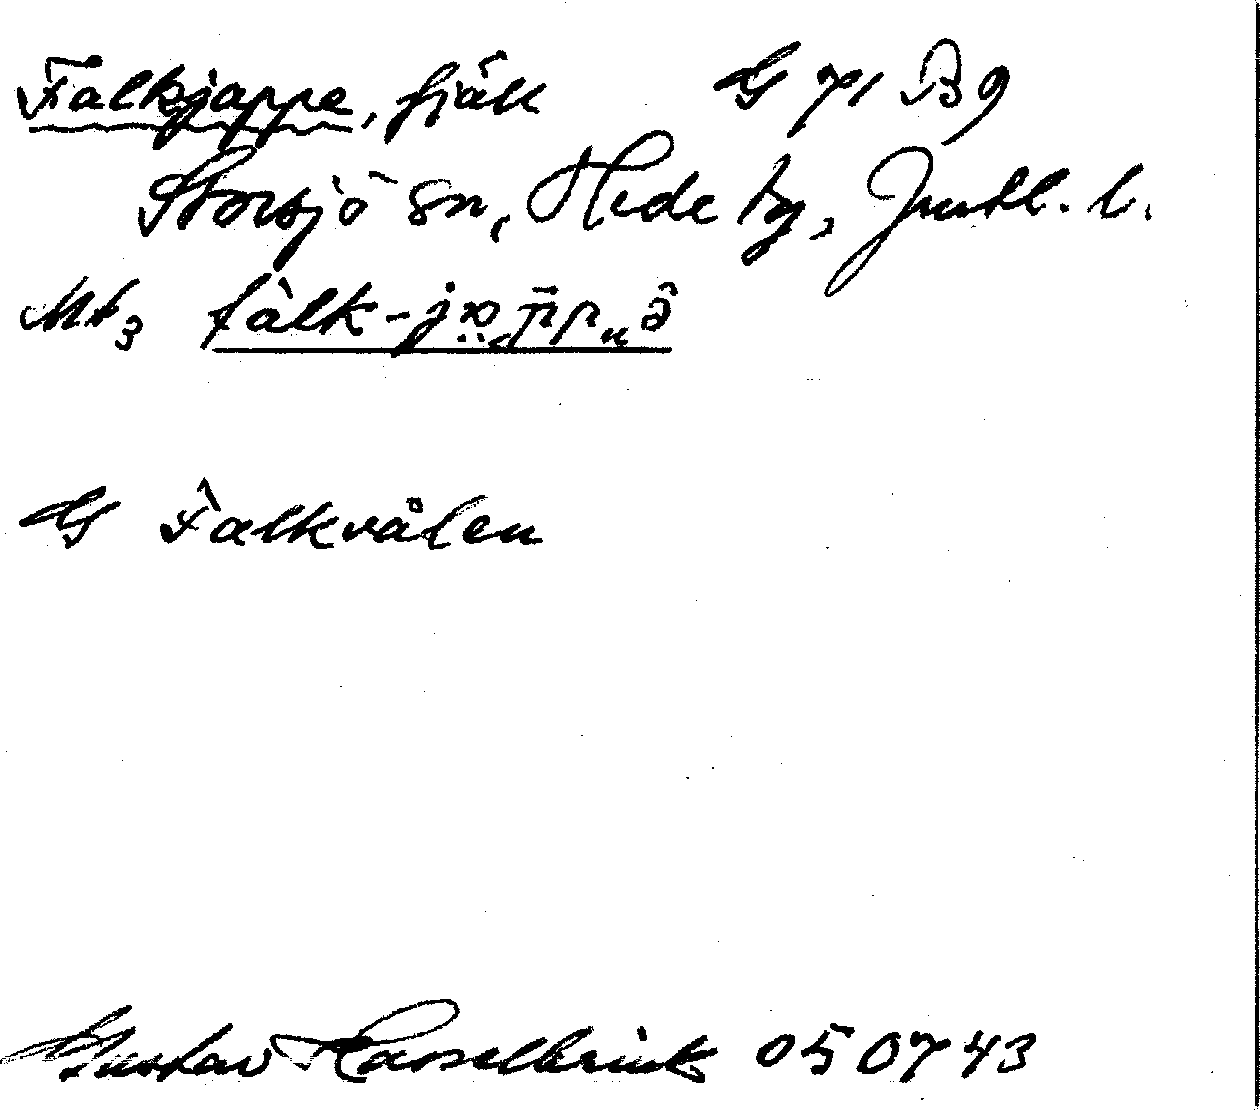 Falkjappe, fjäll G 71 B 9
Storsjö sn, Hede tg, Jmtl. l.
Mt3
G Falkvålen
Gustav Hasselbrink 050743